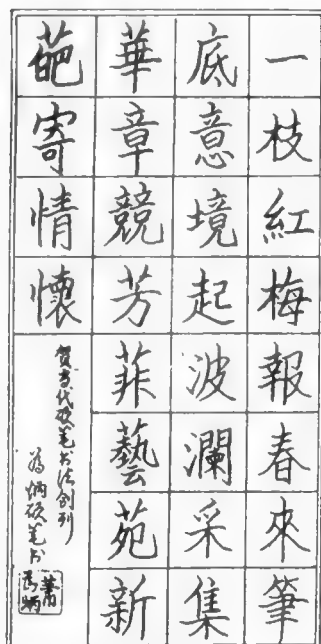 一枝紅梅報春來筆
底意境起波瀾采集
華章競芳菲藝苑新
葩寄情懷
賀當代硬笔书法创刊
为炳硬笔书